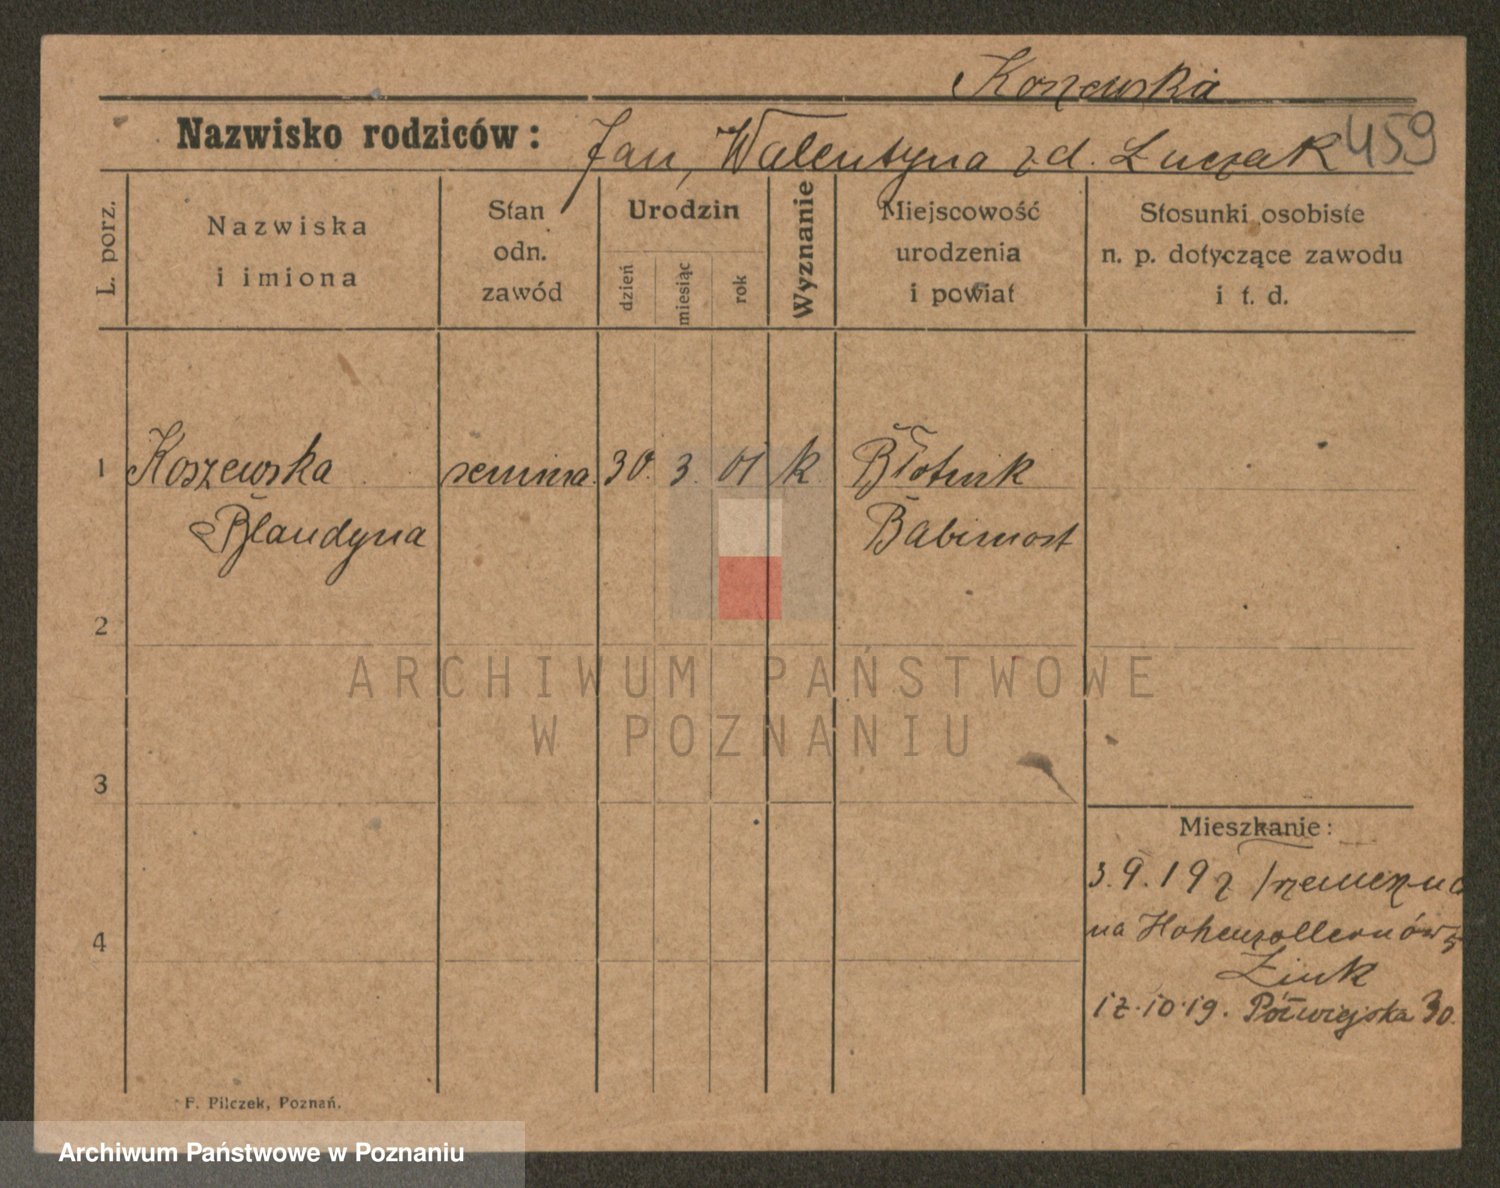 Koszewska
Nazwisko rodziców: Jan, Walentyna z d. Łuczak 459
L. porz.
Nazwiska
i imiona
Stan
odn.
zawód
Urodzin
dzień
miesiąc
rok
Wyznanie
Miejscowość
urodzenia
i powiat
Stosunki osobiste
n. p. dotyczące zawodu
i t. d.
1 Koszewska semina. 30. 3. 01 k Błotnik
Blandyna Babimost
2
3
4
Mieszkanie:
3.9.19 z Trzemeszna
na Hohenzollernów 5
Zink
12.10.19. Półwiejska 30.
F. Pilczek, Poznań.
ARCHIWUM PAŃSTWOWE
W POZNANIU
Archiwum Państwowe w Poznaniu